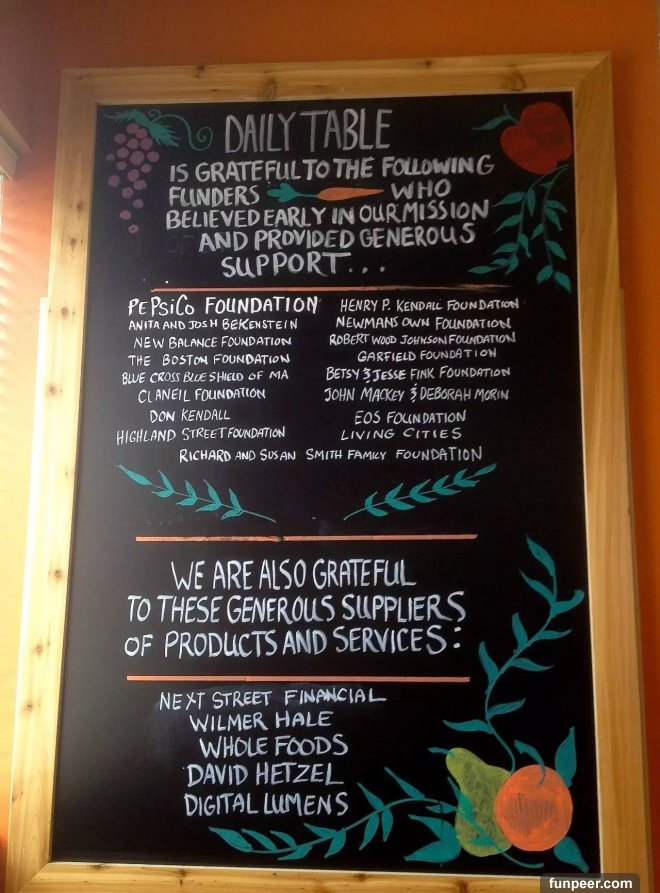 DAILY TABLE
IS GRATEFUL TO THE FOLLOWING
FUNDERS WHO
BELIEVED EARLY IN OUR MISSION
AND PROVIDED GENEROUS
SUPPORT...
PEPSICO FOUNDATION
ANITA AND JOSH BEKENSTEIN
NEW BALANCE FOUNDATION
THE BOSTON FOUNDATION
BLUE CROSS BLUE SHIELD OF MA
CLANEIL FOUNDATION
DON KENDALL
HIGHLAND STREET FOUNDATION
HENRY P. KENDALL FOUNDATION
NEWMANS OWN FOUNDATION
ROBERT WOOD JOHNSON FOUNDATION
GARFIELD FOUNDATION
BETSY & JESSE FINK FOUNDATION
JOHN MACKEY & DEBORAH MORIN
EOS FOUNDATION
LIVING CITIES
RICHARD AND SUSAN SMITH FAMILY FOUNDATION
WE ARE ALSO GRATEFUL
TO THESE GENEROUS SUPPLIERS
OF PRODUCTS AND SERVICES:
NEXT STREET FINANCIAL
WILMER HALE
WHOLE FOODS
DAVID HETZEL
DIGITAL LUMENS
funpeer.com